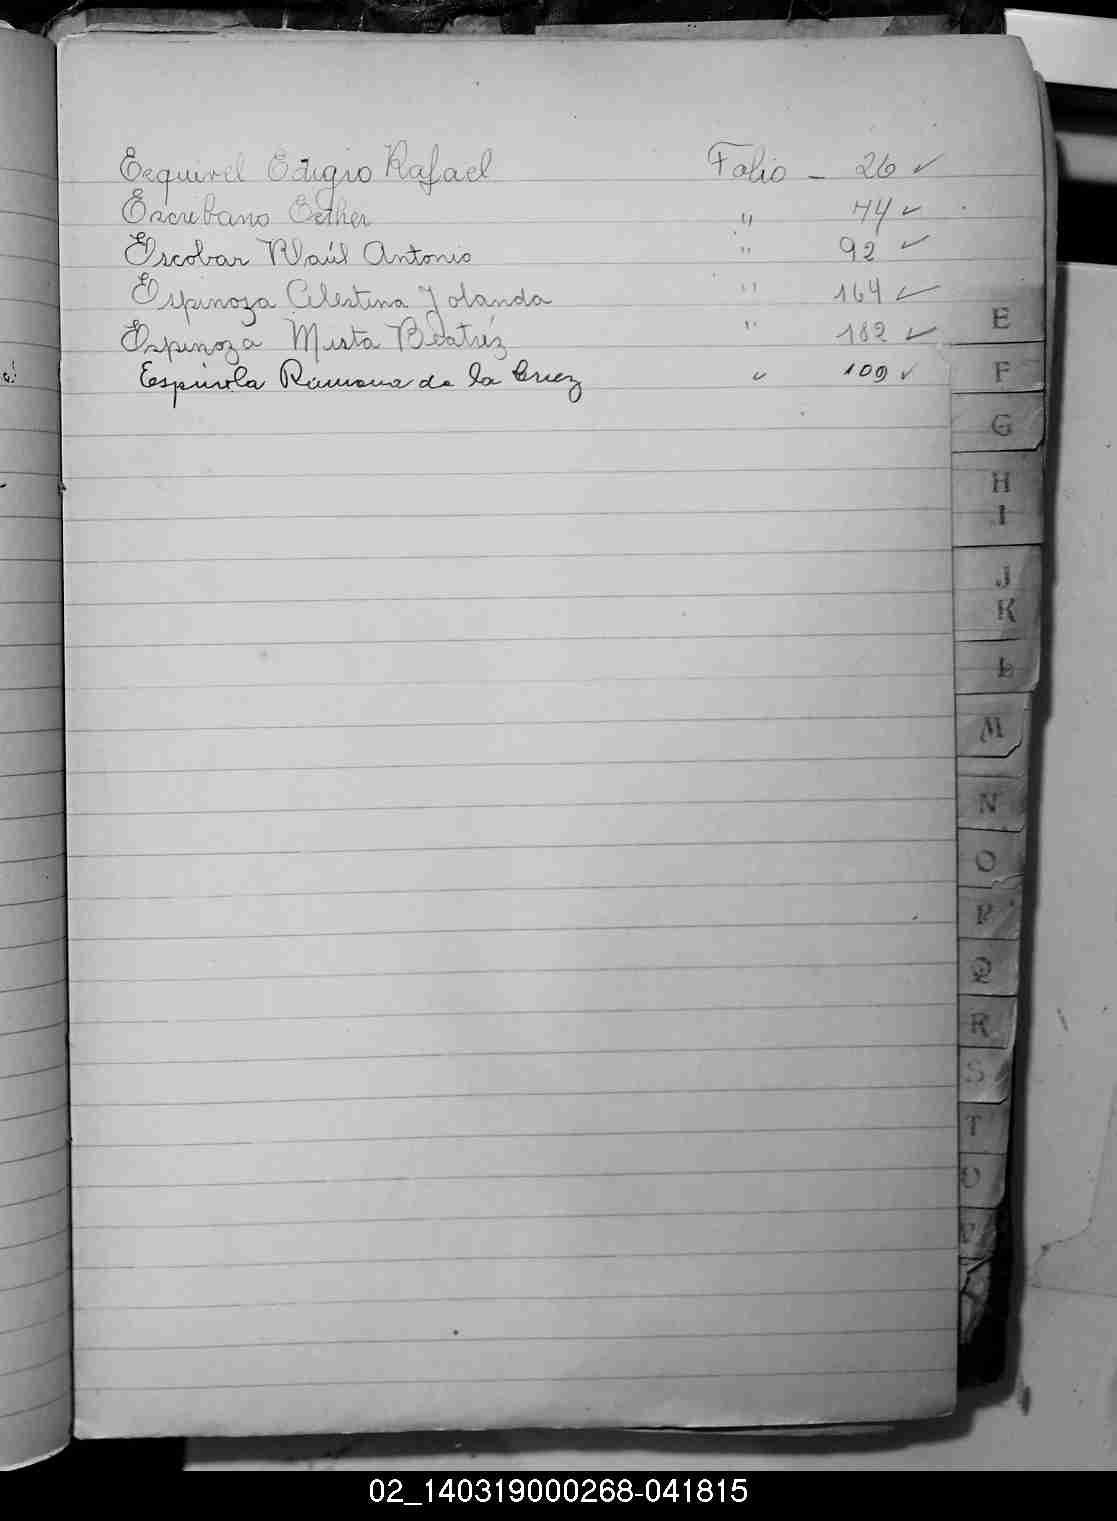 Esquivel Edigio Rafael Folio - 26 ✓
Escribano Esther " 74 ✓
Escobar Raúl Antonio " 92 ✓
Espinoza Celestina Yolanda " 164 ✓
Espinoza Mirta Beatríz " 182 ✓
Espinola Ramona de la Cruz " 109 ✓
E
F
G
H
I
J
K
L
M
N
O
P
Q
R
S
T
U
V
02_140319000268-041815